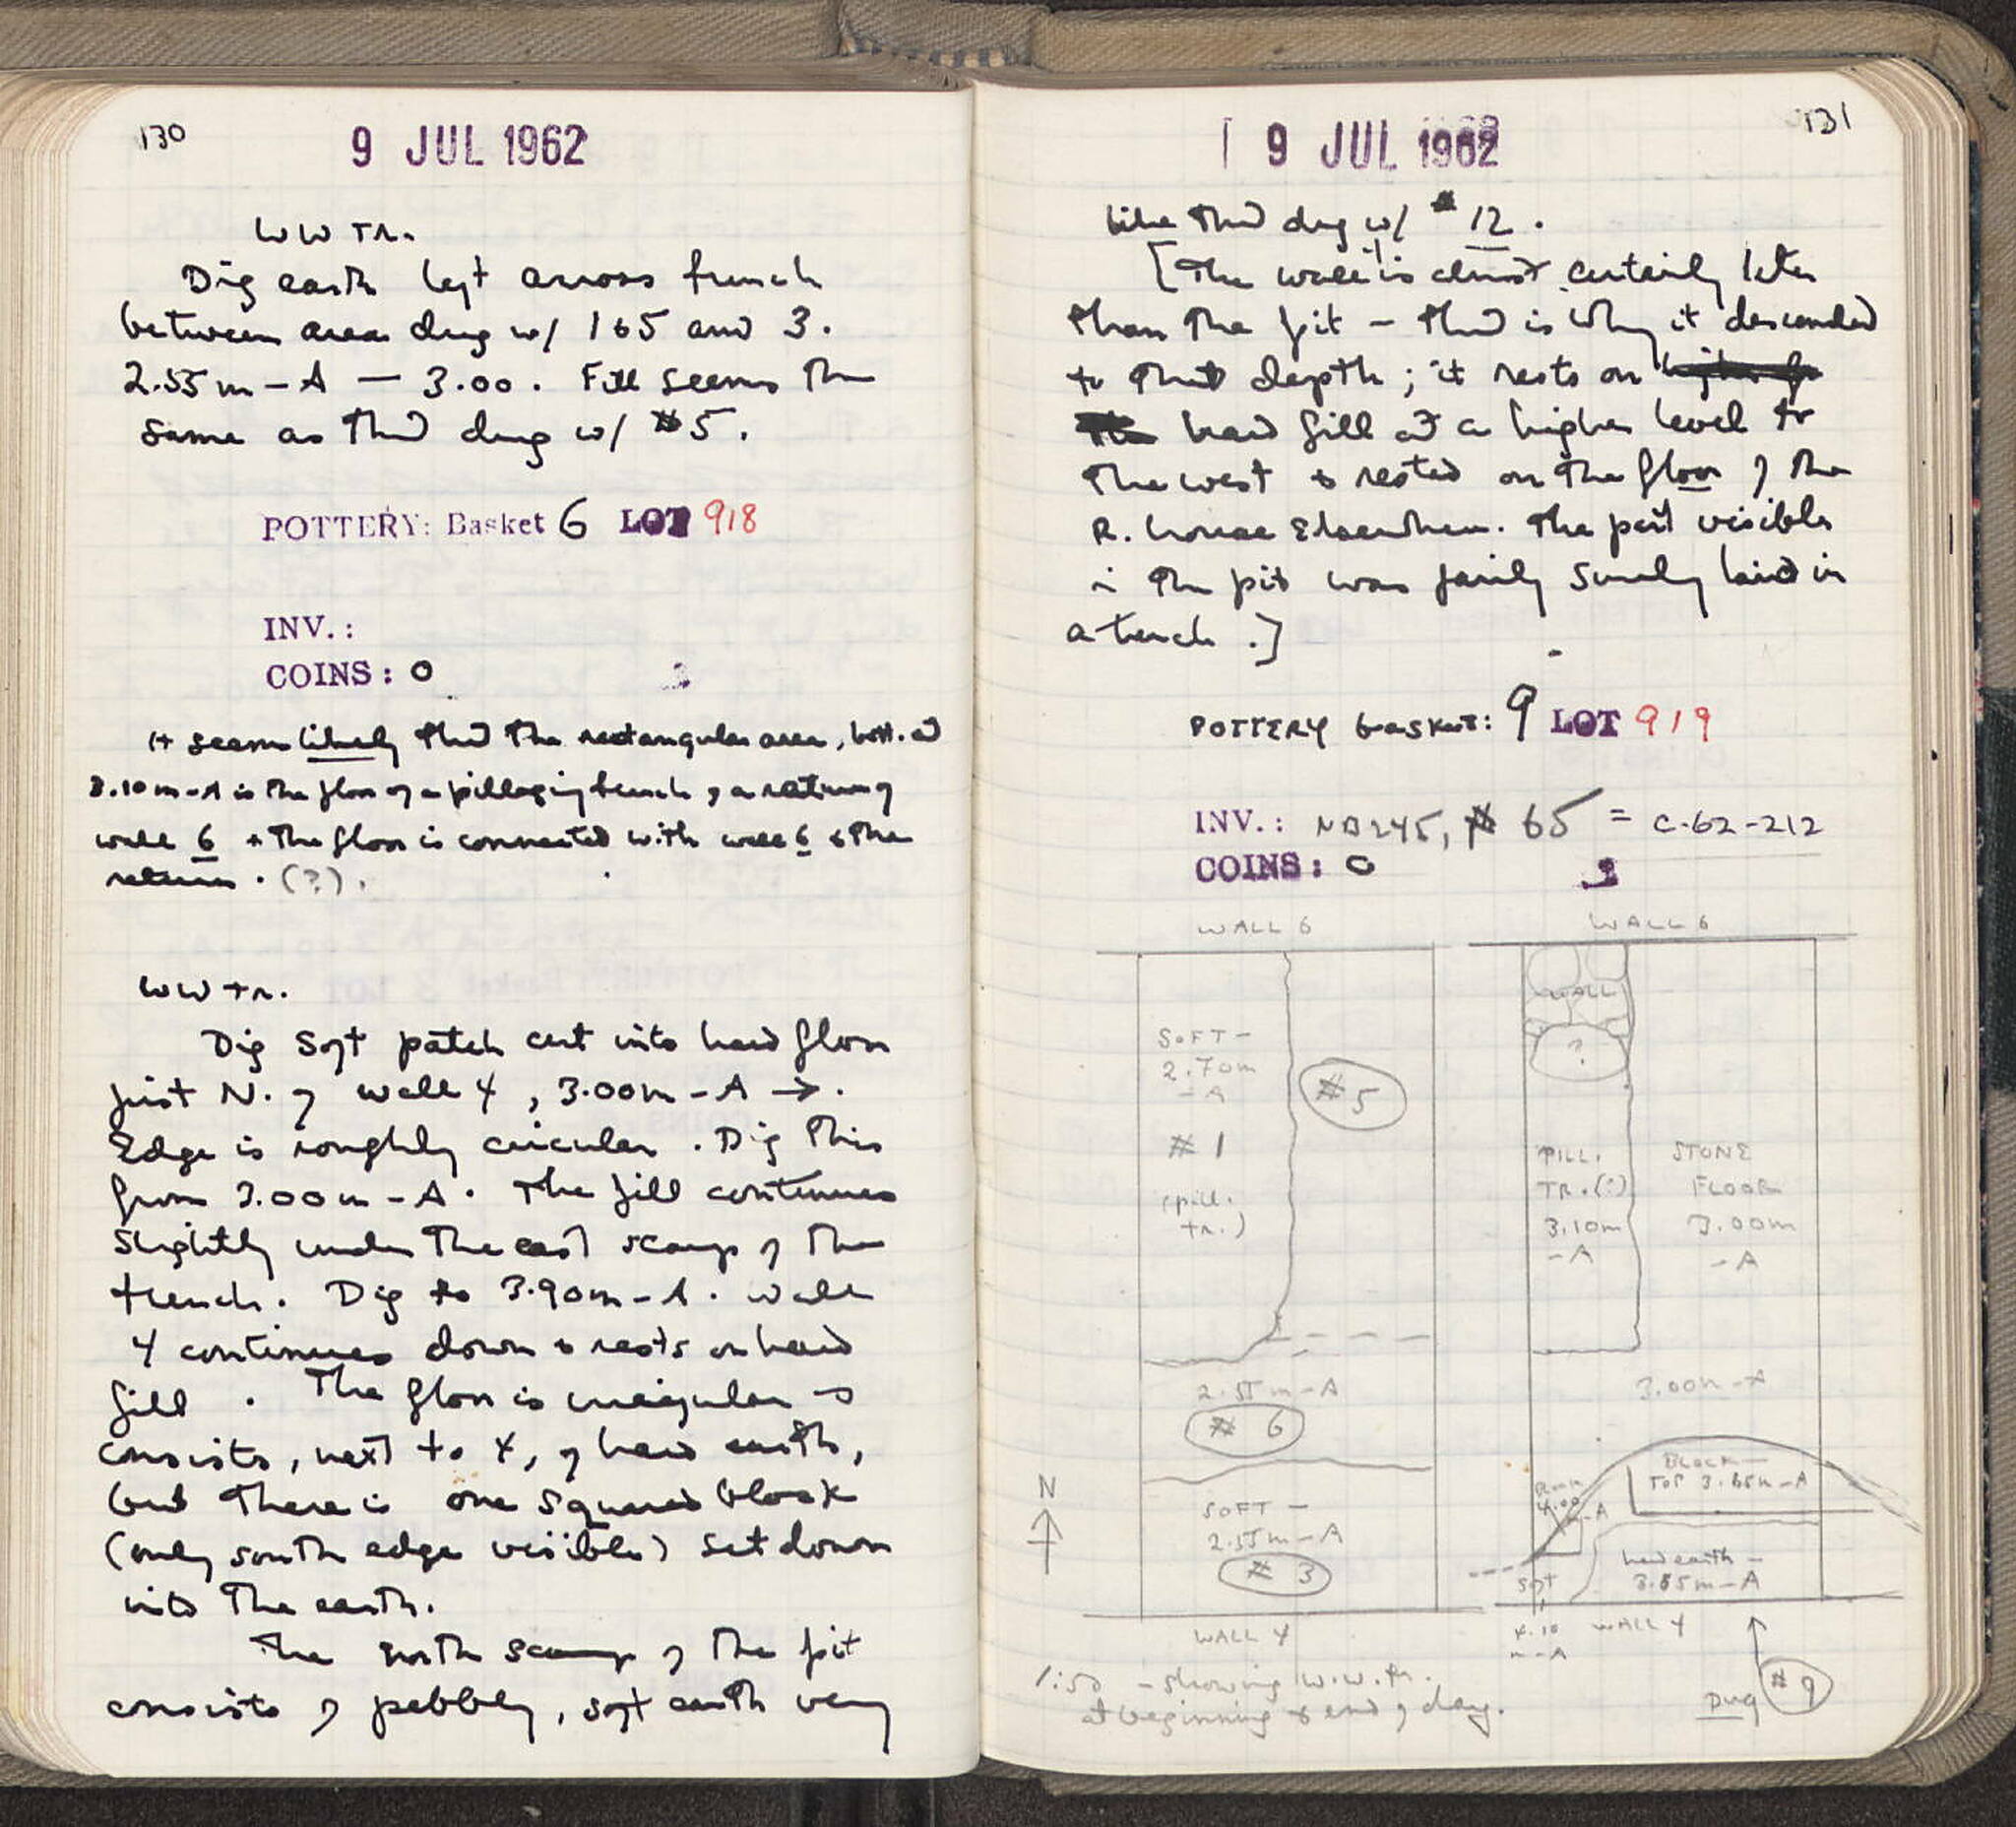 130
9 JUL 1962
WW Tr.
Dig earth left across trench
between area dug w/ 1 & 5 and 3.
2.55m - A — 3.00. Fill seems the
same as that dug w/ #5.
POTTERY: Basket 6 LOT 918
INV.:
COINS: 0
It seems likely that the rectangular area, bott. at
3.10m-A is the floor of a pillaging trench, of a return of
wall 6 & the floor is connected with wall 6 & the
return. (?).
WW Tr.
Dig soft patch cut into hard floor
just N. of wall 4, 3.00m - A →.
Edge is roughly circular. Dig this
from 3.00m - A. The fill continues
slightly under the east scarp of the
trench. Dig to 3.90m - A. Wall
4 continues down & rests on hard
fill. The floor is irregular &
consists, next to 4, of hard earth,
but there is one squared block
(only south edge visible) set down
into the earth.
The north scarp of the pit
consists of pebbly, soft earth very
131
9 JUL 1962
like that dug w/ # 12.
[The wall is almost certainly later
than the pit - that is why it descended
to that depth; it rests on
hard fill at a higher level to
the west & rested on the floor of the
R. house elsewhere. The part visible
in the pit was fairly surely laid in
a trench.]
POTTERY basket: 9 LOT 919
INV.: NB245, # 65 = C-62-212
COINS: 0
WALL 6
SOFT -
2.70m
- A
# 1
(pill.
tr.)
# 5
2.55m - A
# 6
SOFT -
2.55m - A
# 3
WALL 4
N
WALL 6
WALL
?
PILL.
TR. (?)
3.10m
- A
STONE
FLOOR
3.00m
- A
3.00m - A
BLOCK -
TOP 3.65m - A
4.00
m-A
hard earth -
3.85m - A
soft
4.10
m-A
WALL 4
DUG # 9
1:50 - showing W.W.tr.
at beginning & end of day.